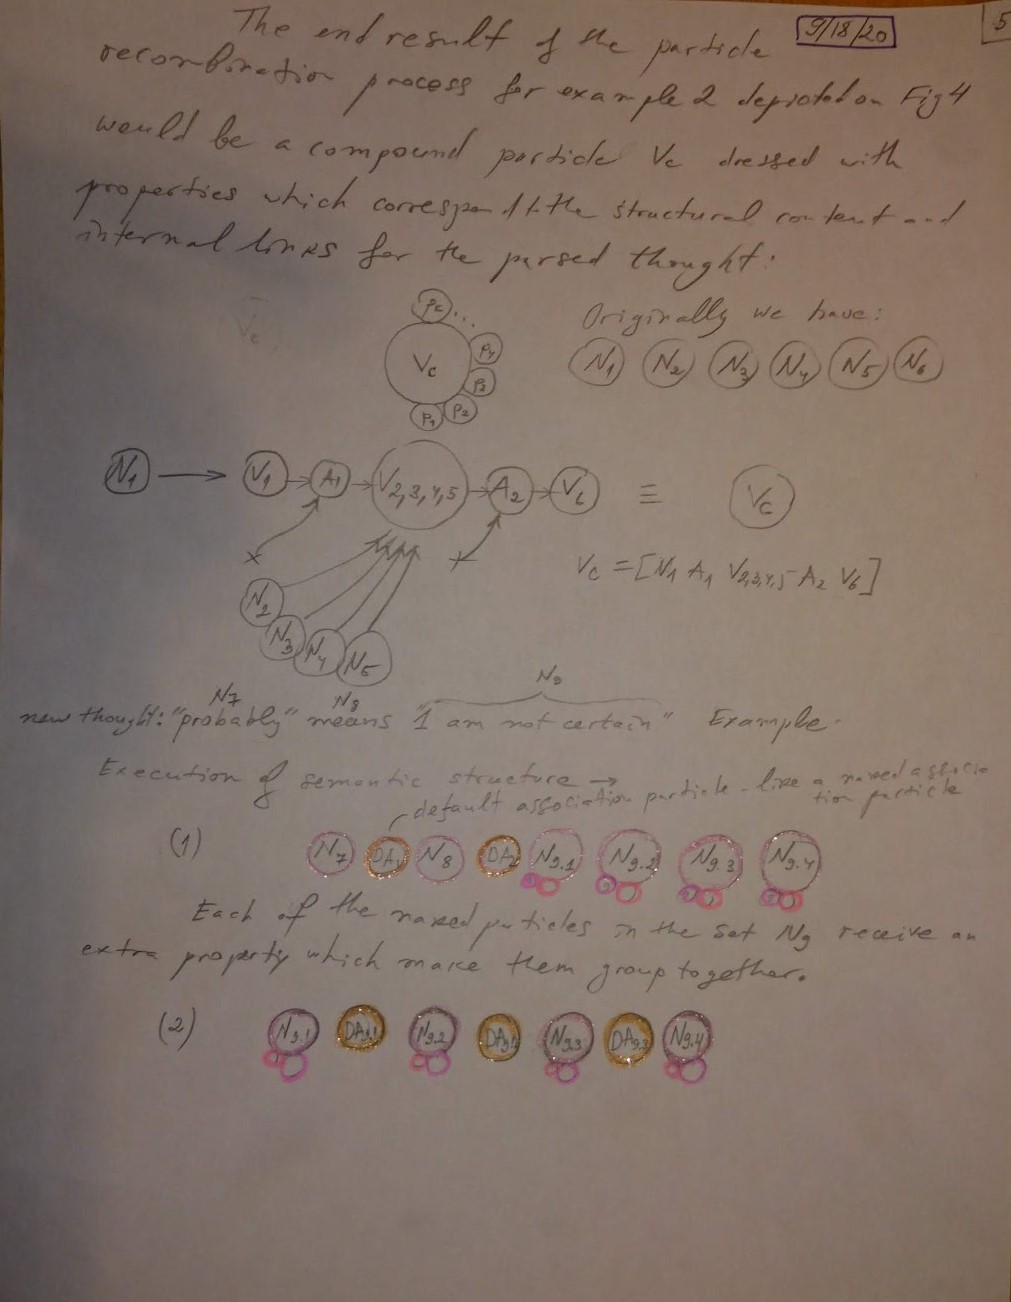 9/18/20
5
The end result of the particle
recombination process for example 2 depicted on Fig 4
would be a compound particle Vc dressed with
properties which correspond to the structural content and
internal links for the parsed thought:
Vc
Pc ...
Vc
P4
P3
P2
P1
Originally we have:
N1 N2 N3 N4 N5 N6
N1 → V1 → A1 → V2,3,4,5 → A2 → V6 ≡ Vc
Vc = [N1 A1 V2,3,4,5 A2 V6]
N2
N3
N4
N5
N7 N8 N9
new thought: "probably" means "I am not certain" Example.
Execution of semantic structure →
default association particle - like a naked associa-
tion particle
(1)
N7 DA1 N8 DA2 N9.1 N9.2 N9.3 N9.4
Each of the naked particles in the set N9 receive an
extra property which make them group together.
(2)
N9.1 DA9.1 N9.2 DA9.2 N9.3 DA9.3 N9.4